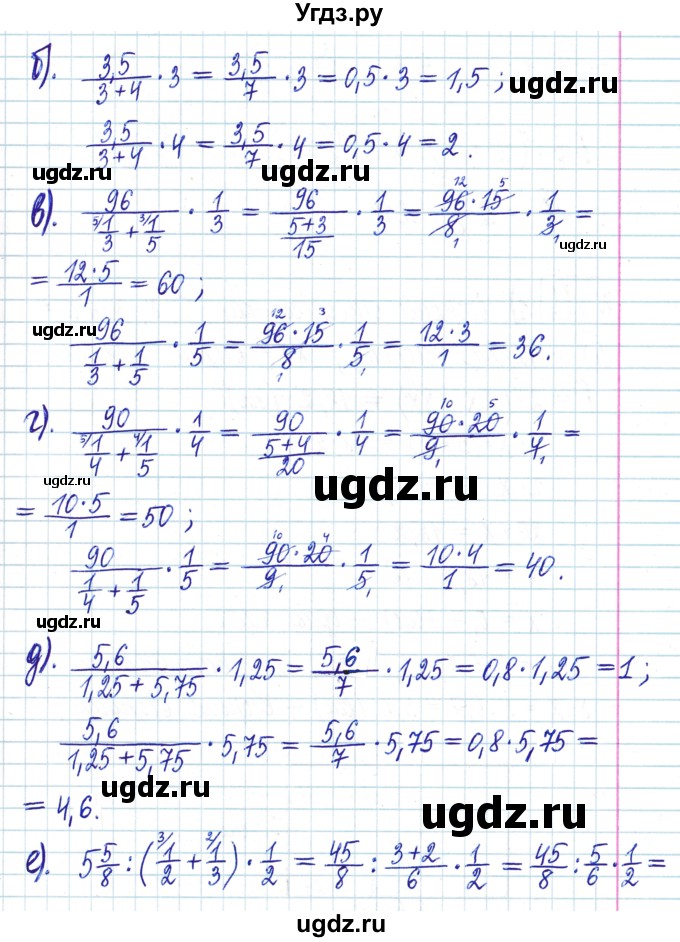 Угдз.ру
б). 3,5/(3+4) · 3 = 3,5/7 · 3 = 0,5 · 3 = 1,5 ;
ugdz.ru
3,5/(3+4) · 4 = 3,5/7 · 4 = 0,5 · 4 = 2 .
ugdz.ru ugdz.ru
в). 96/(⁵⁾1/3 + ³⁾1/5) · 1/3 = 96/((5+3)/15) · 1/3 = (96¹² · 15⁵)/8₁ · 1/3₁ =
= (12 · 5)/1 = 60 ;
ugdz.ru ugdz.ru
96/(1/3 + 1/5) · 1/5 = (96¹² · 15³)/8₁ · 1/5₁ = (12 · 3)/1 = 36.
г). 90/(⁵⁾1/4 + ⁴⁾1/5) · 1/4 = 90/((5+4)/20) · 1/4 = (90¹⁰ · 20⁵)/9₁ · 1/4₁ =
ugdz.ru ugdz.ru
= (10 · 5)/1 = 50 ;
90/(1/4 + 1/5) · 1/5 = (90¹⁰ · 20⁴)/9₁ · 1/5₁ = (10 · 4)/1 = 40.
ugdz.ru
ugdz.ru
д). 5,6/(1,25 + 5,75) · 1,25 = 5,6/7 · 1,25 = 0,8 · 1,25 = 1 ;
5,6/(1,25 + 5,75) · 5,75 = 5,6/7 · 5,75 = 0,8 · 5,75 =
ugdz.ru
= 4,6.
ugdz.ru
е). 5 5/8 : (³⁾1/2 + ²⁾1/3) · 1/2 = 45/8 : (3+2)/6 · 1/2 = 45/8 : 5/6 · 1/2 =
ugdz.ru